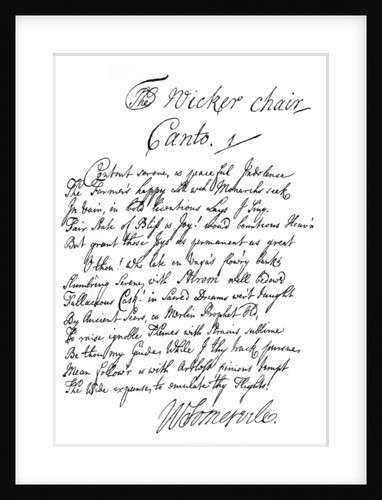 The Wicker chair
Canto. 1
Content serene, as peaceful Indolence
The Farmer's happy with Monarchs seek
In vain, in bold licentious Lays I Sing.
Fair State of Bliss & Joy! would bounteous Heav'n
But grant those Joys as permanent as great
O thou! who late on Vaga's flowry banks
Slumbring Serene, with Strom well bedew'd
Fallacious Cask! in Sacred Dreams wert taught
By Ancient Seers, as Merlin Prophet
To raise ignoble Themes with Strains sublime
Be thou my Guide; While I thy track pursue,
Mean Follow'r with Artless pinions tempt
The Wide expanse, to emulate thy Flights!
WSomervile.